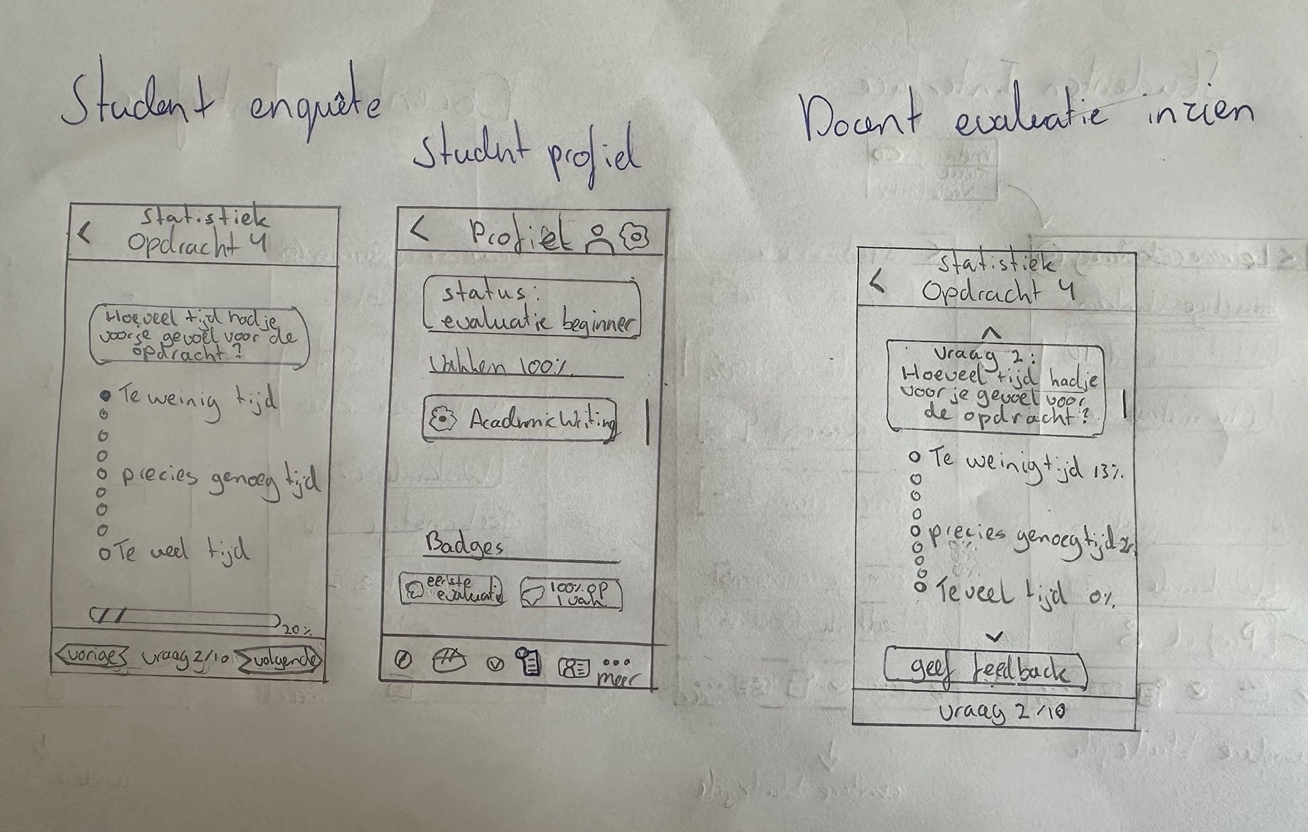 Student enquête
Student profiel
Docent evaluatie inzien
<
Statistiek
Opdracht 4
Hoeveel tijd had je
voor je gevoel voor de
opdracht?
Te weinig tijd
precies genoeg tijd
Te veel tijd
20%
vorige
vraag 2/10
volgende
< Profiel
status:
evaluatie beginner
Vakken 100%
Academic Writing
Badges
eerste
evaluatie
100% op
1 vak
meer
<
Statistiek
Opdracht 4
vraag 2:
Hoeveel tijd had je
voor je gevoel voor
de opdracht?
Te weinig tijd 13%
precies genoeg tijd
Te veel tijd 0%
geef feedback
vraag 2/10